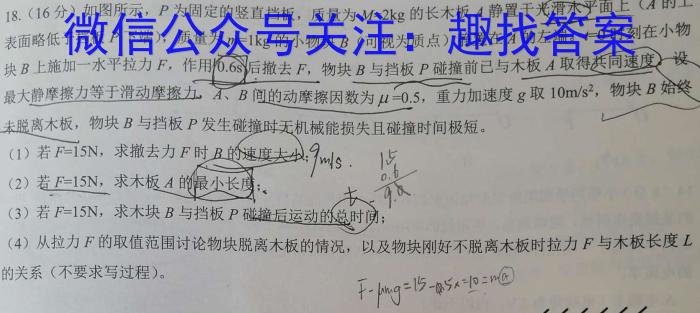 18.(16分)如图所示，P为固定的竖直挡板，质量为M=2kg的长木板A静置于光滑水平面上（A的上
表面略低于
微信公众号关注：趣找答案
质量为m=1kg的小物块B（可视为质点）
时刻在小物
块B上施加一水平拉力F，作用0.6s后撤去F，物块B与挡板P碰撞前已与木板A取得共同速度。设
最大静摩擦力等于滑动摩擦力，A、B间的动摩擦因数为μ=0.5，重力加速度g取10m/s²，物块B始终
未脱离木板，物块B与挡板P发生碰撞时无机械能损失且碰撞时间极短。
(1)若F=15N，求撤去力F时B的速度大小；9m/s.
15
0.6
9.0
(2)若F=15N，求木板A的最小长度；
t
(3)若F=15N，求木块B与挡板P碰撞后运动的总时间；
(4)从拉力F的取值范围讨论物块脱离木板的情况，以及物块刚好不脱离木板时拉力F与木板长度L
的关系（不要求写过程）。
F-μmg=15-0.5×=10=ma